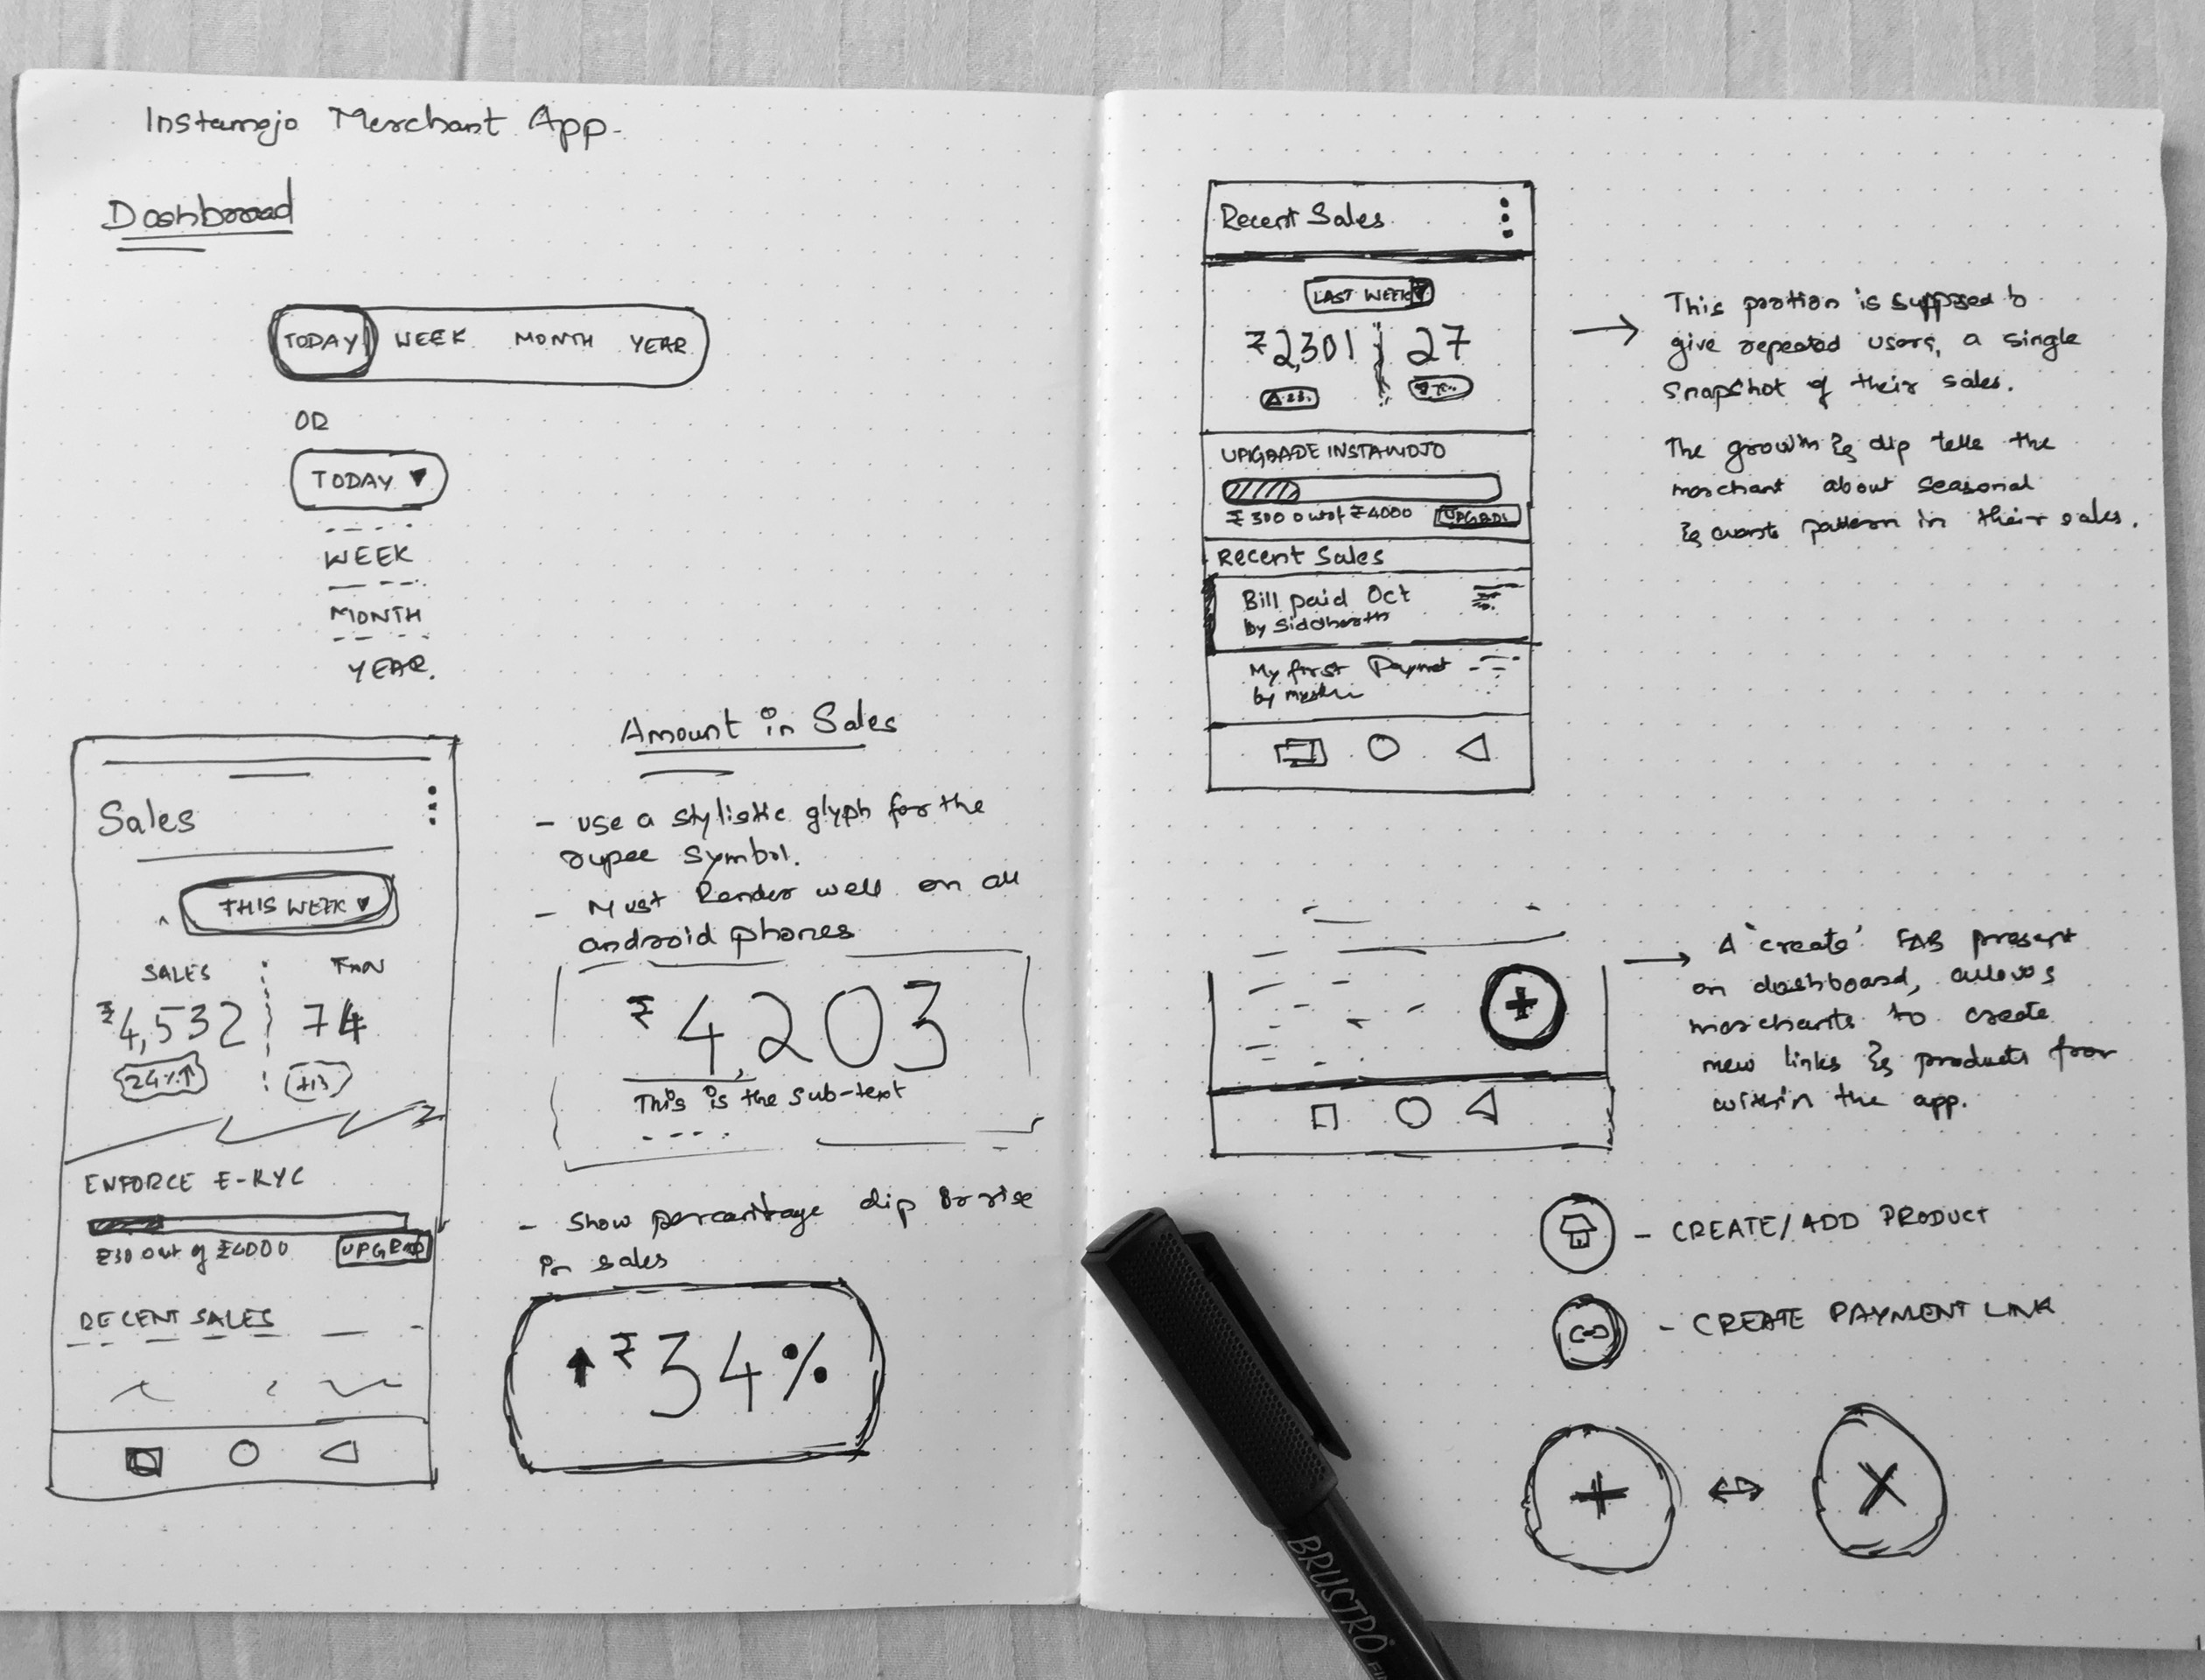 Instamojo Merchant App.
Dashboard
TODAY WEEK MONTH YEAR
OR
TODAY ▼
WEEK
MONTH
YEAR.
Sales
THIS WEEK ▼
SALES TXN
₹4,532 74
24%↑ +13
ENFORCE E-KYC
₹30 out of ₹4000 UPGRAD
RECENT SALES
Amount in Sales
- use a stylistic glyph for the
rupee symbol.
- Must Render well on all
android phones
₹4,203
This is the sub-text
- Show percentage dip or rise
in sales
↑ ₹34%
Recent Sales
LAST WEEK ▼
₹2,301 27
UPGRADE INSTAMOJO
₹300 out of ₹4000 UPGRADE
Recent Sales
Bill paid Oct
by Siddharth
My first Paymet
by
→ This portion is supposed to
give repeated users, a single
snapshot of their sales.
The growth & dip tells the
merchant about seasonal
& pattern in their sales.
+
→ A 'create' FAB present
on dashboard, allows
merchants to create
new links & products from
within the app.
- CREATE/ADD PRODUCT
- CREATE PAYMENT LINK
+ ↔ X
BRUSTRO